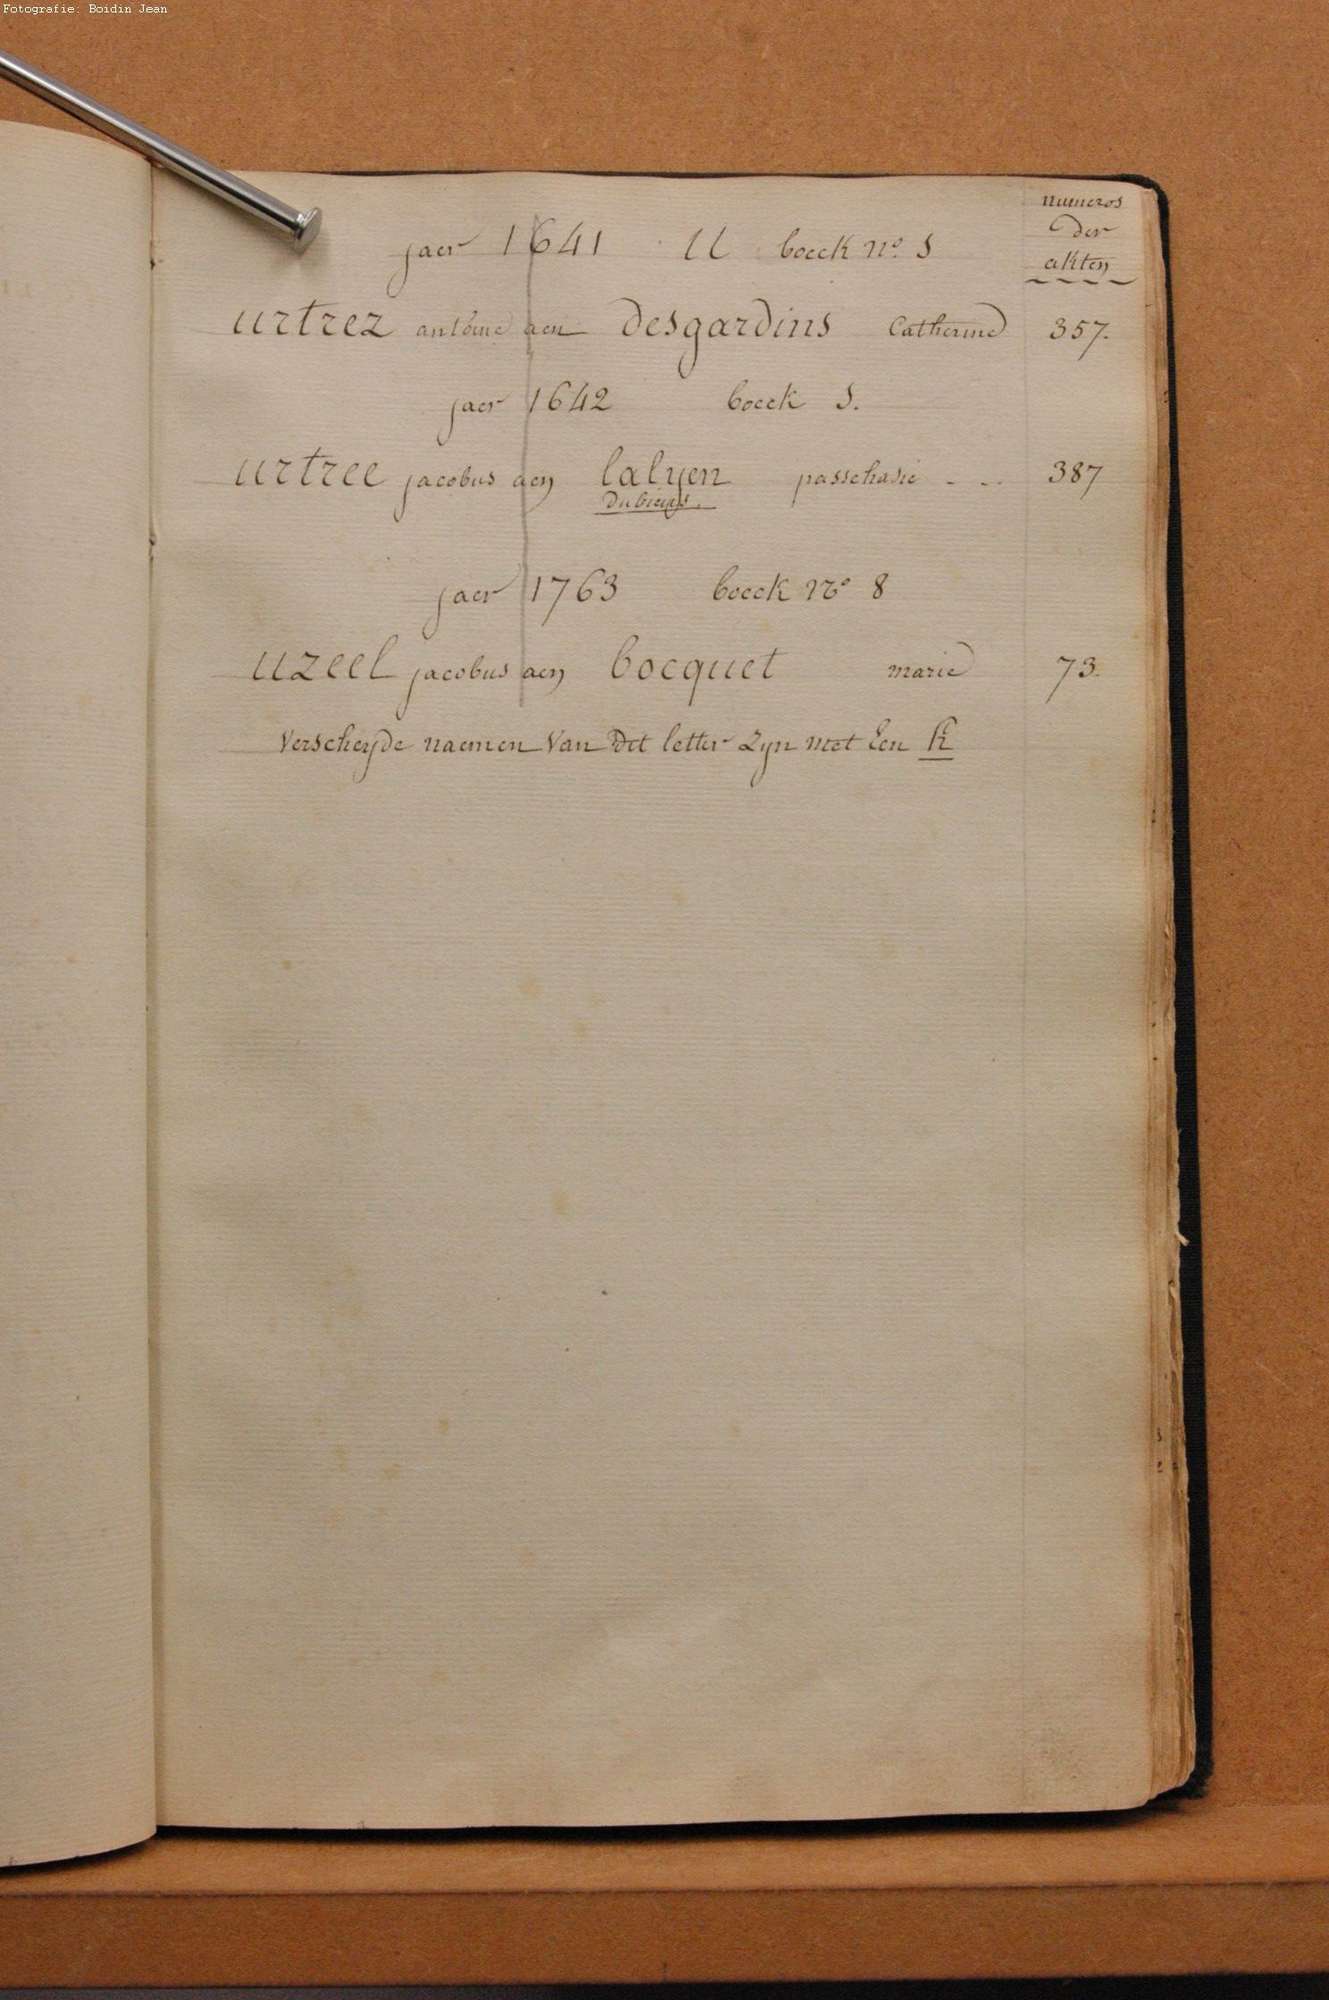 Fotografie: Boidin Jean
numeros
der
akten
jaer 1641 U boeck n° 5
urtrez antoine aen desgardins Catherine 357.
jaer 1642 boeck 5.
urtree jacobus aen lalyen passchasie - - - 387
dubieus.
jaer 1763 boeck n° 8
uzeel jacobus aen bocquet marie 73.
Verscheyde naemen Van Dit letter Zyn met Een h